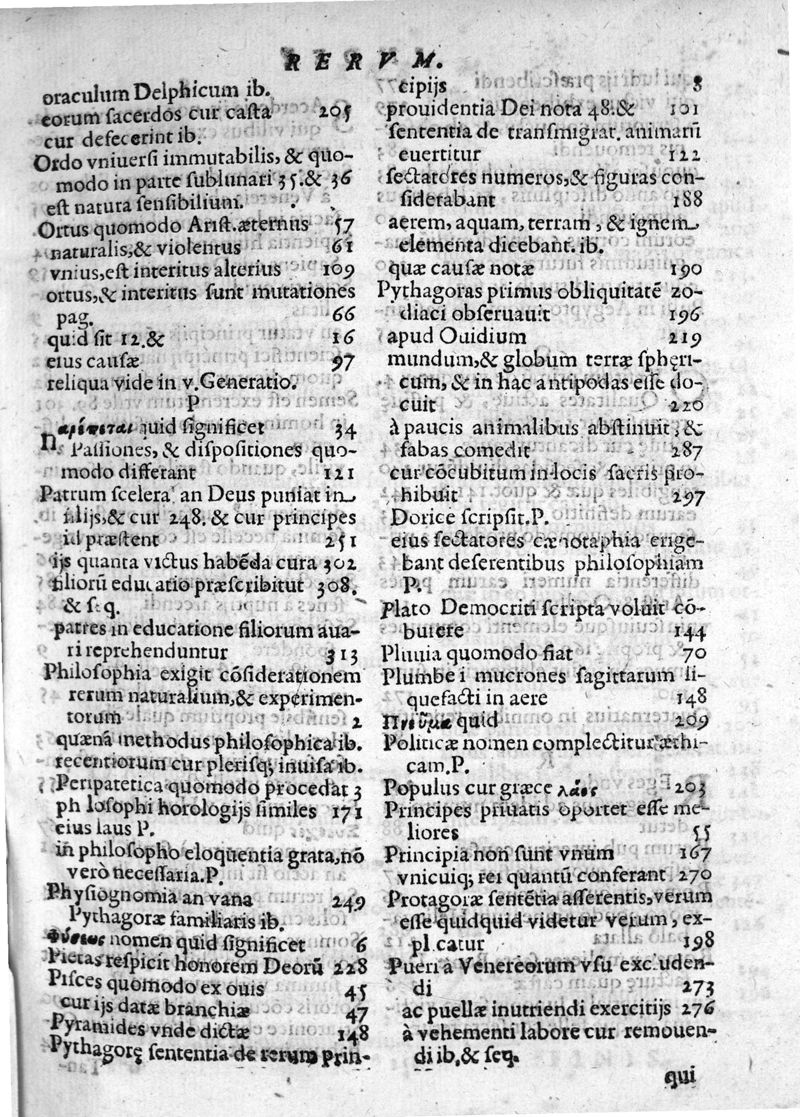 RERVM.
oraculum Delphicum ib.
eorum sacerdos cur casta 205
cur defecerint ib.
Ordo vniuersi immutabilis, & quo-
modo in parte sublunari 35. & 36
est natura sensibilium.
Ortus quomodo Arist. æternus 57
naturalis, & violentus 61
vnius, est interitus alterius 109
ortus, & interitus sunt mutationes
pag. 66
quid sit 12. & 16
eius causæ 97
reliqua vide in v. Generatio.
P
quid significet 34
Passiones, & dispositiones quo-
modo differant 121
Patrum scelera an Deus puniat in
filijs, & cur 248. & cur principes
id præstent 251
ijs quanta victus habēda cura 302
filiorū educatio præscribitut 308.
& seq.
patres in educatione filiorum aua-
ri reprehenduntur 313
Philosophia exigit cōsiderationem
rerum naturalium, & experimen-
torum 2
quænā methodus philosophica ib.
recentiorum cur plerisq; inuisa ib.
Peripatetica quomodo procedat 3
ph losophi horologijs similes 171
eius laus P.
in philosopho eloquentia grata, nō
verò necessaria. P.
Physiognomia an vana 249
Pythagoræ familiaris ib.
Φύσεως nomen quid significet 6
Pietas respicit honorem Deorū 228
Pisces quomodo ex ouis 45
cur ijs datæ branchiæ 47
Pyramides vnde dictæ 148
Pythagorę sententia de rerum prin-
cipijs 8
prouidentia Dei nota 48. & 101
sententia de transmigrat. animarū
euertitur 122
sectatores numeros, & figuras con-
siderabant 188
aerem, aquam, terram, & ignem
elementa dicebant. ib.
quæ causæ notæ 190
Pythagoras primus obliquitatē zo-
diaci obseruauit 196
apud Ouidium 219
mundum, & globum terræ sphęri-
cum, & in hac antipodas esse do-
cuit 220
à paucis animalibus abstinuit, &
fabas comedit 287
cur cōcubitum in locis sacris pro-
hibuit 297
Dorice scripsit. P.
eius sectatores cænotaphia erige-
bant deserentibus philosophiam
P.
Plato Democriti scripta voluit cō-
burere 144
Pluuia quomodo fiat 70
Plumbei mucrones sagittarum li-
quefacti in aere 148
Πνεῦμα quid 209
Politicæ nomen complectitur æthi-
cam. P.
Populus cur græce λάος 203
Principes priuatis oportet esse me-
liores 55
Principia non sunt vnum 167
vnicuiq; rei quantū conferant 270
Protagoræ sentētia asserentis, verum
esse quidquid videtur verum, ex-
pl catur 198
Pueri à Venereorum vsu excluden-
di 273
ac puellæ inutriendi exercitijs 276
à vehementi labore cur remouen-
di ib. & seq.
qui